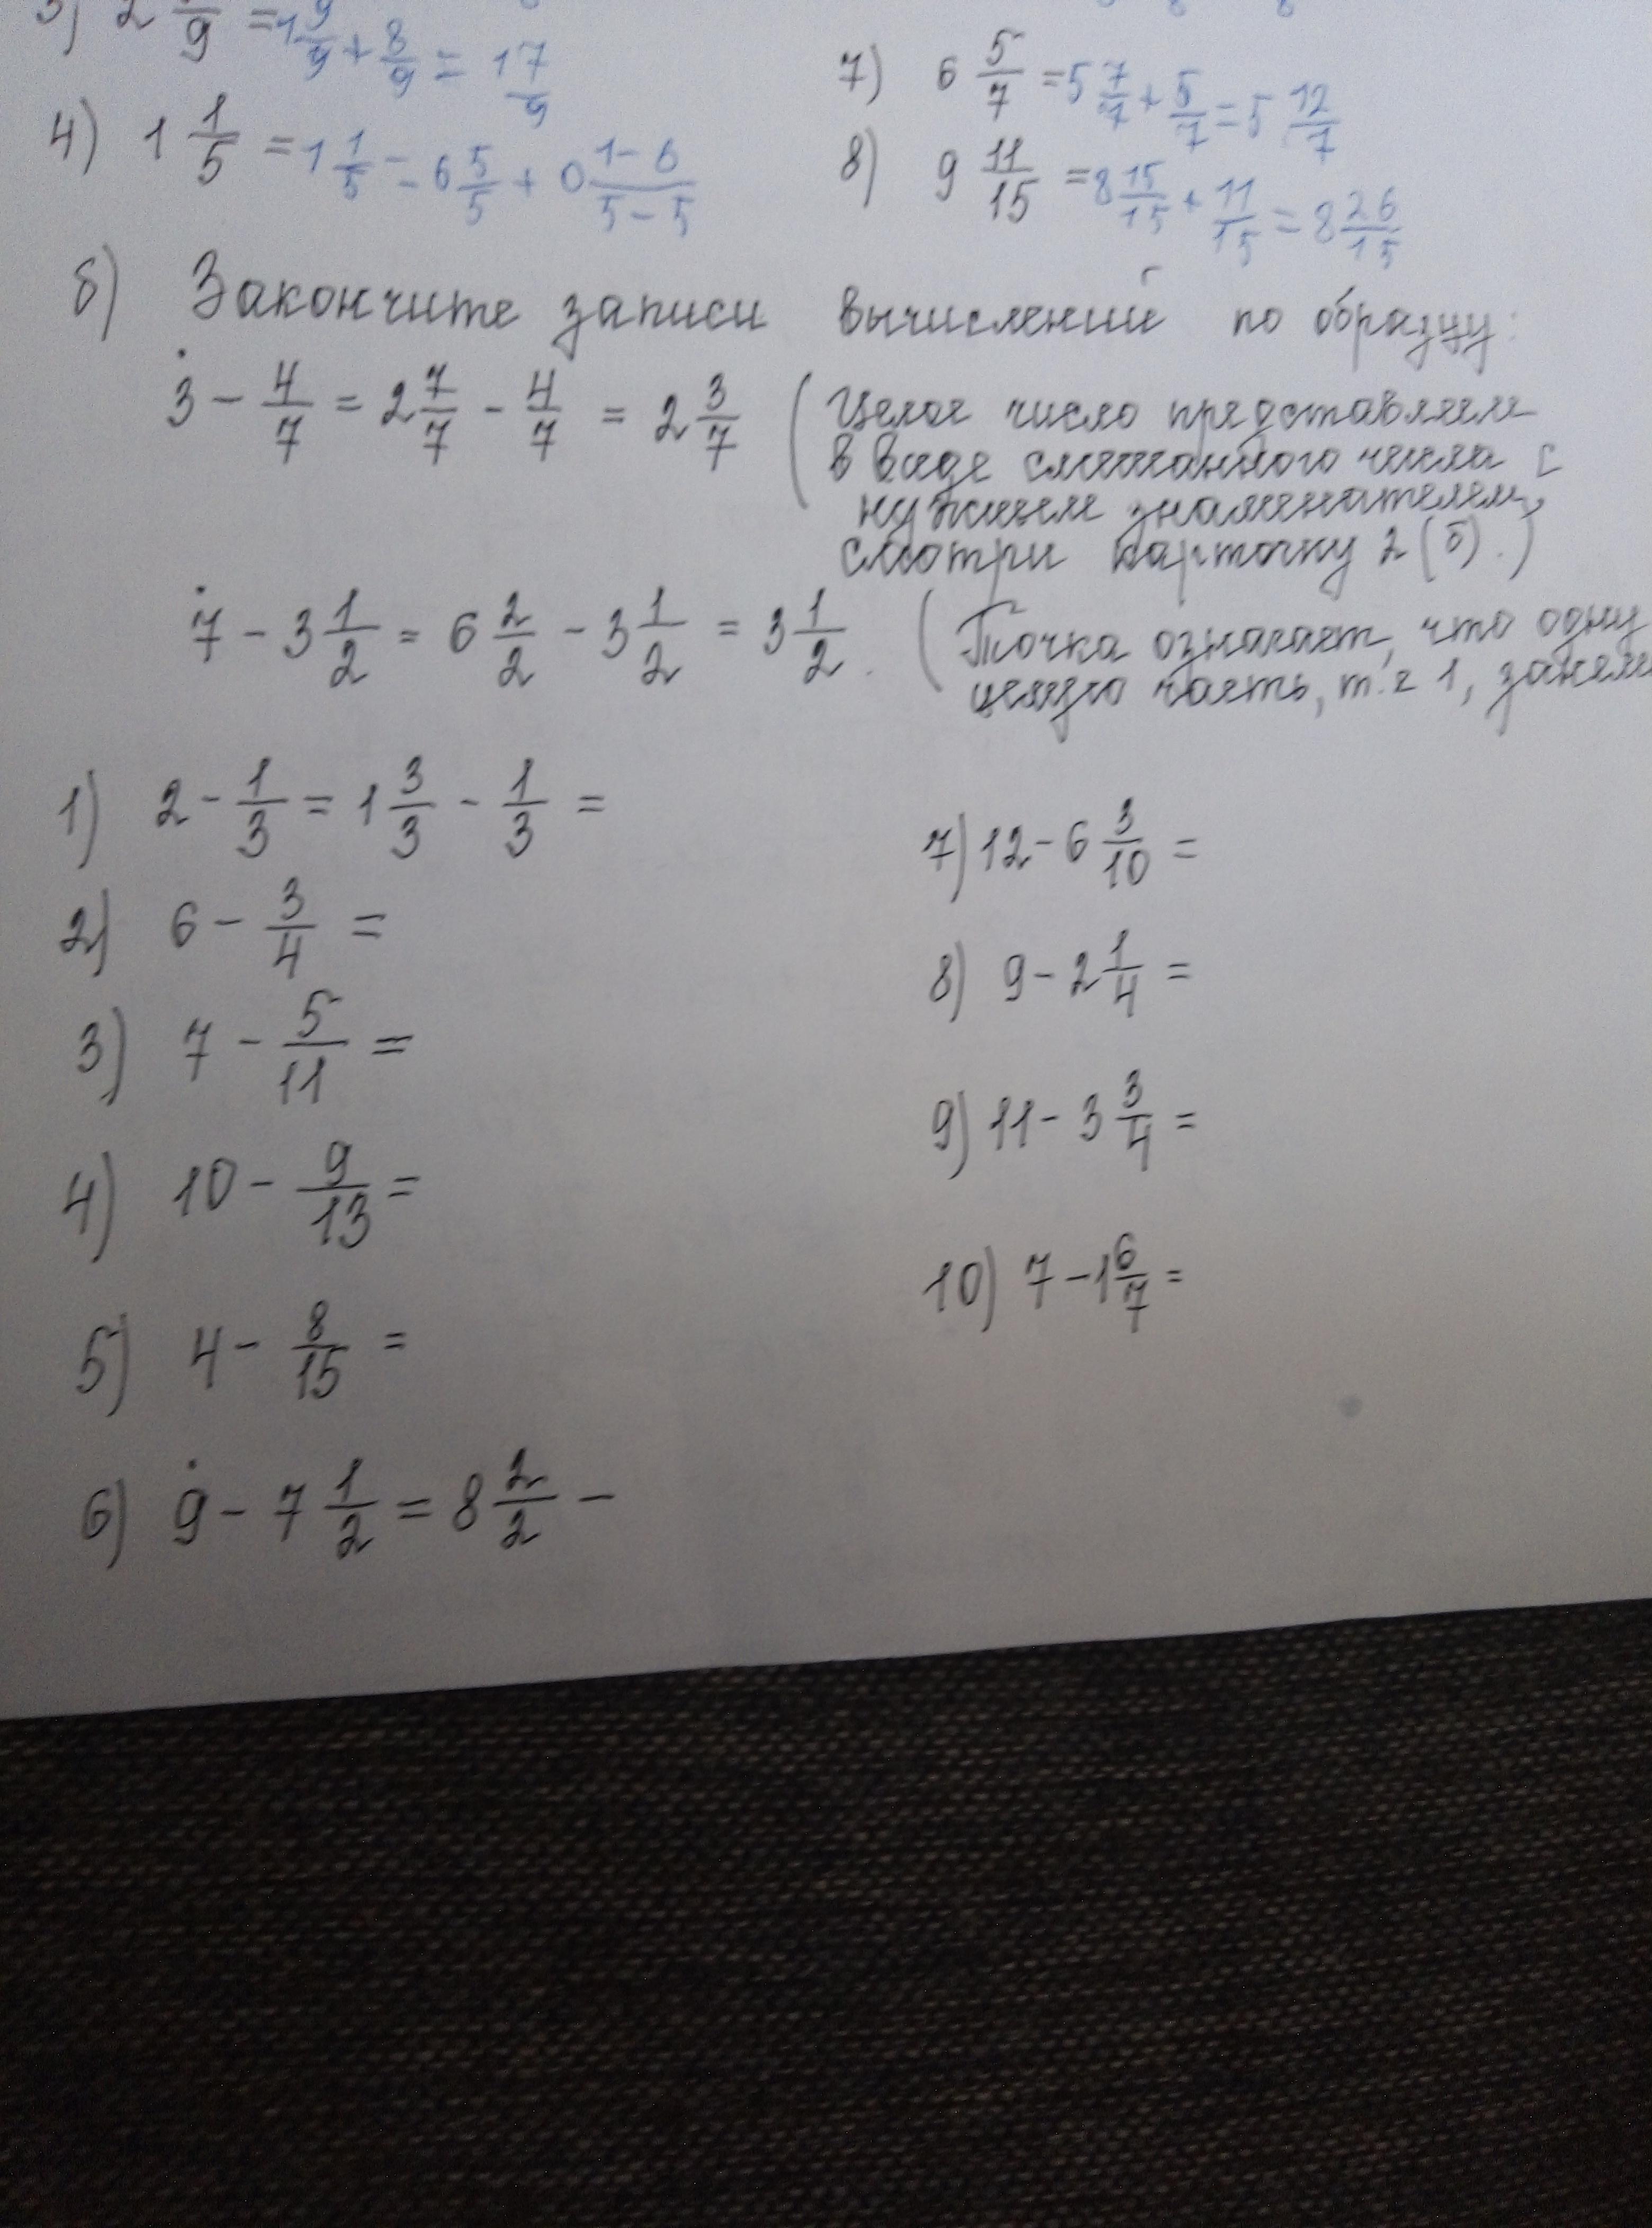 3) 2 8/9 = 1 9/9 + 8/9 = 1 17/9
4) 1 1/5 = 1 1/5 = 6 5/5 + 0 1-6/5-5
7) 6 5/7 = 5 7/7 + 5/7 = 5 12/7
8) 9 11/15 = 8 15/15 + 11/15 = 8 26/15
б) Закончите записи вычислений по образцу:
3 - 4/7 = 2 7/7 - 4/7 = 2 3/7 (Целое число представляем
в виде смешанного числа с
нужным знаменателем,
смотри карточку 2 (б).)
7 - 3 1/2 = 6 2/2 - 3 1/2 = 3 1/2. (Точка означает, что одну
целую часть, т.е 1, занем
1) 2 - 1/3 = 1 3/3 - 1/3 =
2) 6 - 3/4 =
3) 7 - 5/11 =
4) 10 - 9/13 =
5) 4 - 8/15 =
6) 9 - 7 1/2 = 8 2/2 -
7) 12 - 6 3/10 =
8) 9 - 2 1/4 =
9) 11 - 3 3/4 =
10) 7 - 1 6/7 =